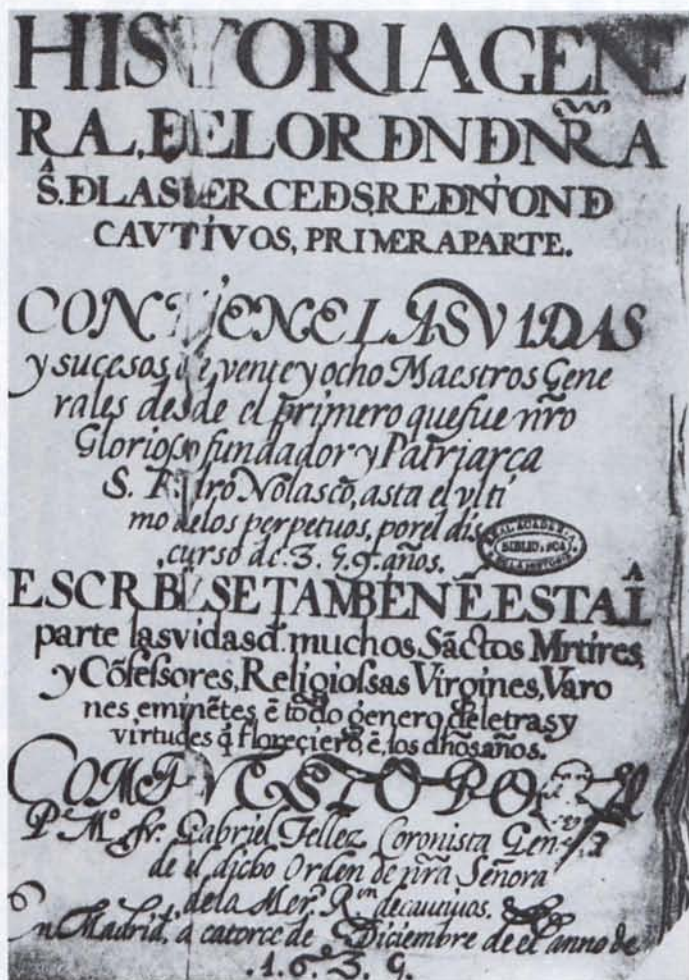 HISTORIA GENE
RAL, DE LORDN D NR̃A
S. D LAS MERCEDS, REDNÇION D
CAVTIVOS, PRIMERA PARTE.
CONTIENE LAS VIDAS
y sucesos de vente y ocho Maestros Gene
rales desde el primero que fue nr̃o
Glorioso fundador y Patriarca
S. Pedro Nolasco, asta el vlti
mo de los perpetuos, por el dis
curso de .3.99. años.
REAL ACADEMIA
BIBLIOTECA
DE LA HISTORIA
ESCRIBESE TAMBEN Ē ESTA Î
parte las vidas d. muchos Sãctos Mrtires,
y Cõfessores, Religiossas Virgines, Varo
nes, eminẽtes, ẽ todo genero de letras y
virtudes q̃ floreçierõ, ẽ, los dhõs años.
COMPVESTO POR EL
P.e M.o fr. Gabriel Tellez Coronista Gen.
de el dicho Orden de nr̃a Señora
de la Mer.d R.on de cautiuos.
En Madrid, a catorce de Diciembre de el anno de
.1.6.3.9.